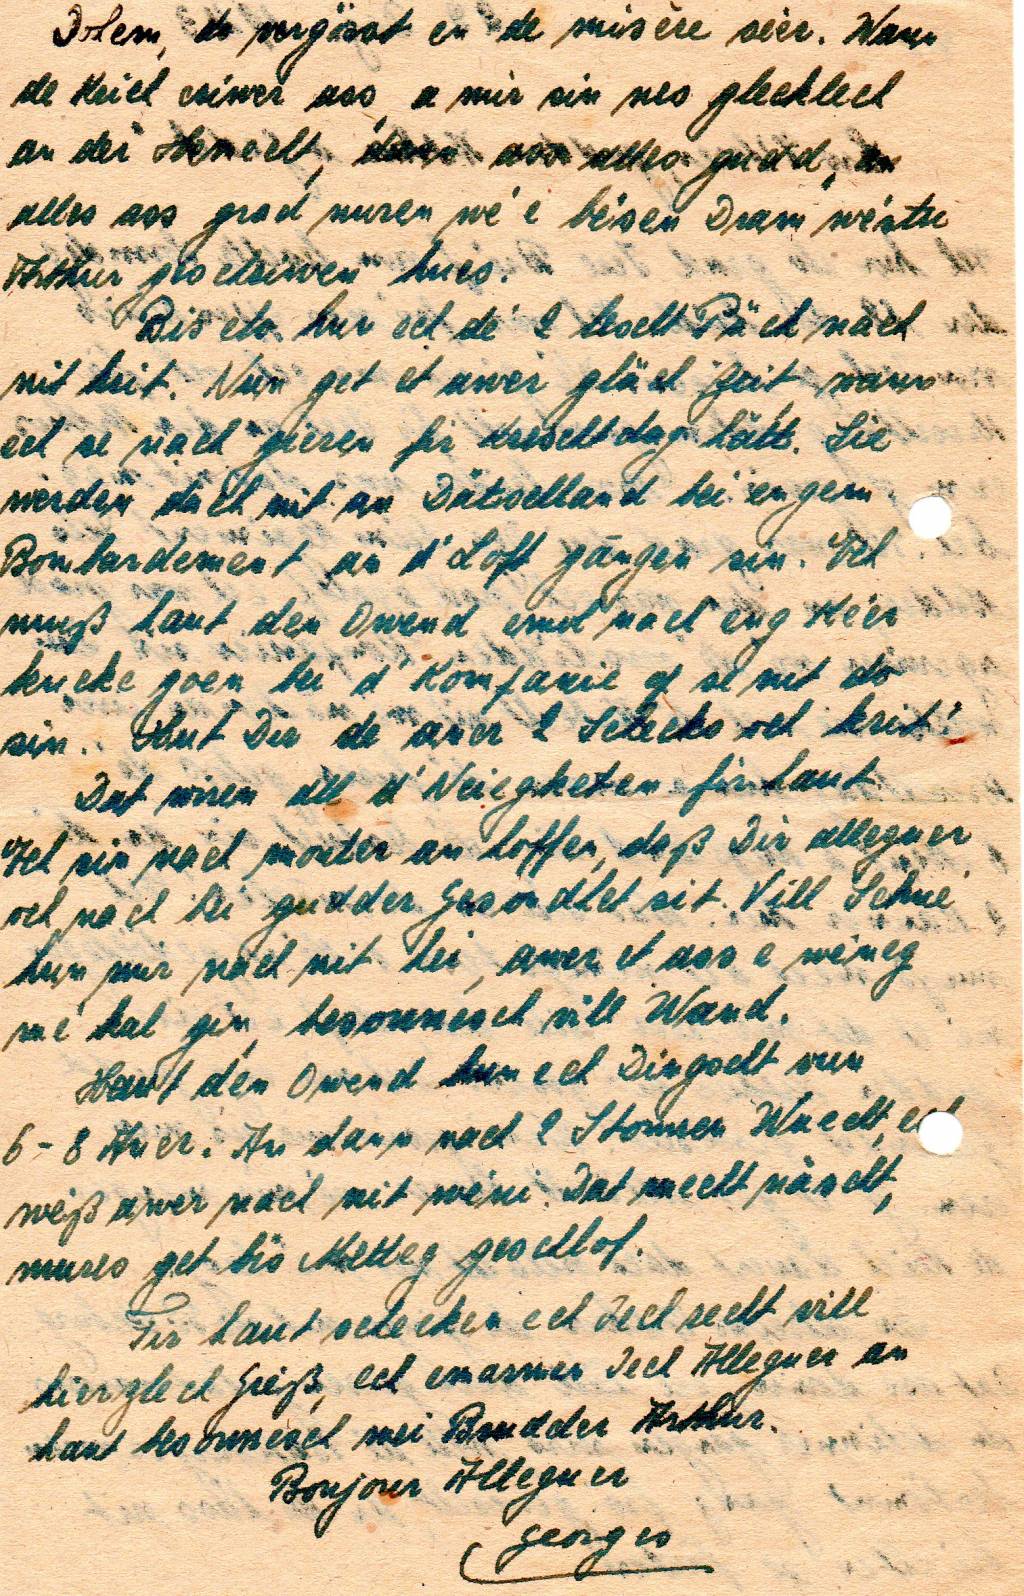 Dolem, do vergësst en de misère séer. Wann
de Krich eriwer ass, a mir sin nes gleklech
an der Hemecht, dann ass alles gudd, an
alles ass grad nuren wé e béisen Dram wéstu
Arthur geschriwen hues.
Bis elo hun ech dé 2 lescht Päck nach
nit krit. Nun get et awer gläich Zeit wann
ech se nach gieren fir Kreschtdag hätt. Sie
werden dach nit an Däitschland bei engem
Bombardement an d'Loft gängen sin. Ech
muß haut den Owend emol nach eng Kéer
kucke goen bei d'Kompanie op se nit do
sin. Hut Dir dé aner 2 Schecks och krit?
Dat wiren all d'Neiegketen fir haut
Ech sin nach monter an hoffen, daß Dir alleguer
och nach bei gudder Gesondhet sit. Vill Schné
hun mir nach nit hei, awer et ass e wéineg
mé kal gin, besonnesch vill Wand.
Haut den Owend hun ech Dingscht vun
6-8 Auer. An dann nach 2 Stonnen Wuecht, ech
weiß awer nach nit wéini. Dat mecht näischt,
mures get bis Metteg geschlof.
Fir haut schecken ech Iech recht vill
hierzlech Greiß, ech emarmen Iech Alleguer an
haut besonnesch mei Brudder Arthur.
Bonjour Alleguer
Georges